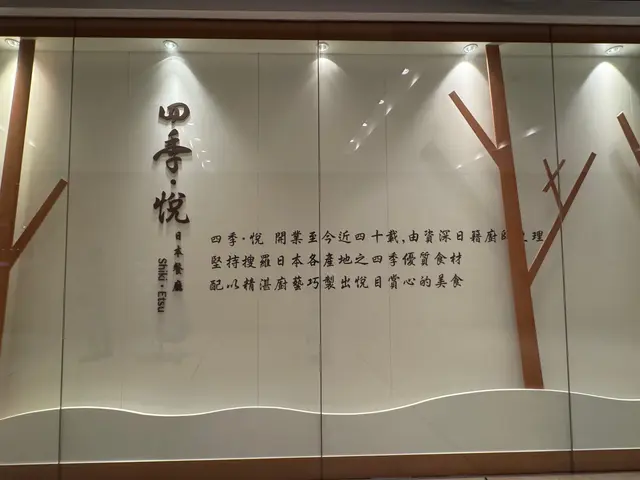 四季·悅
日本餐廳
Shiki·Etsu
四季·悅 開業至今近四十載,由資深日籍廚師主理
堅持搜羅日本各產地之四季優質食材
配以精湛廚藝巧製出悅目賞心的美食